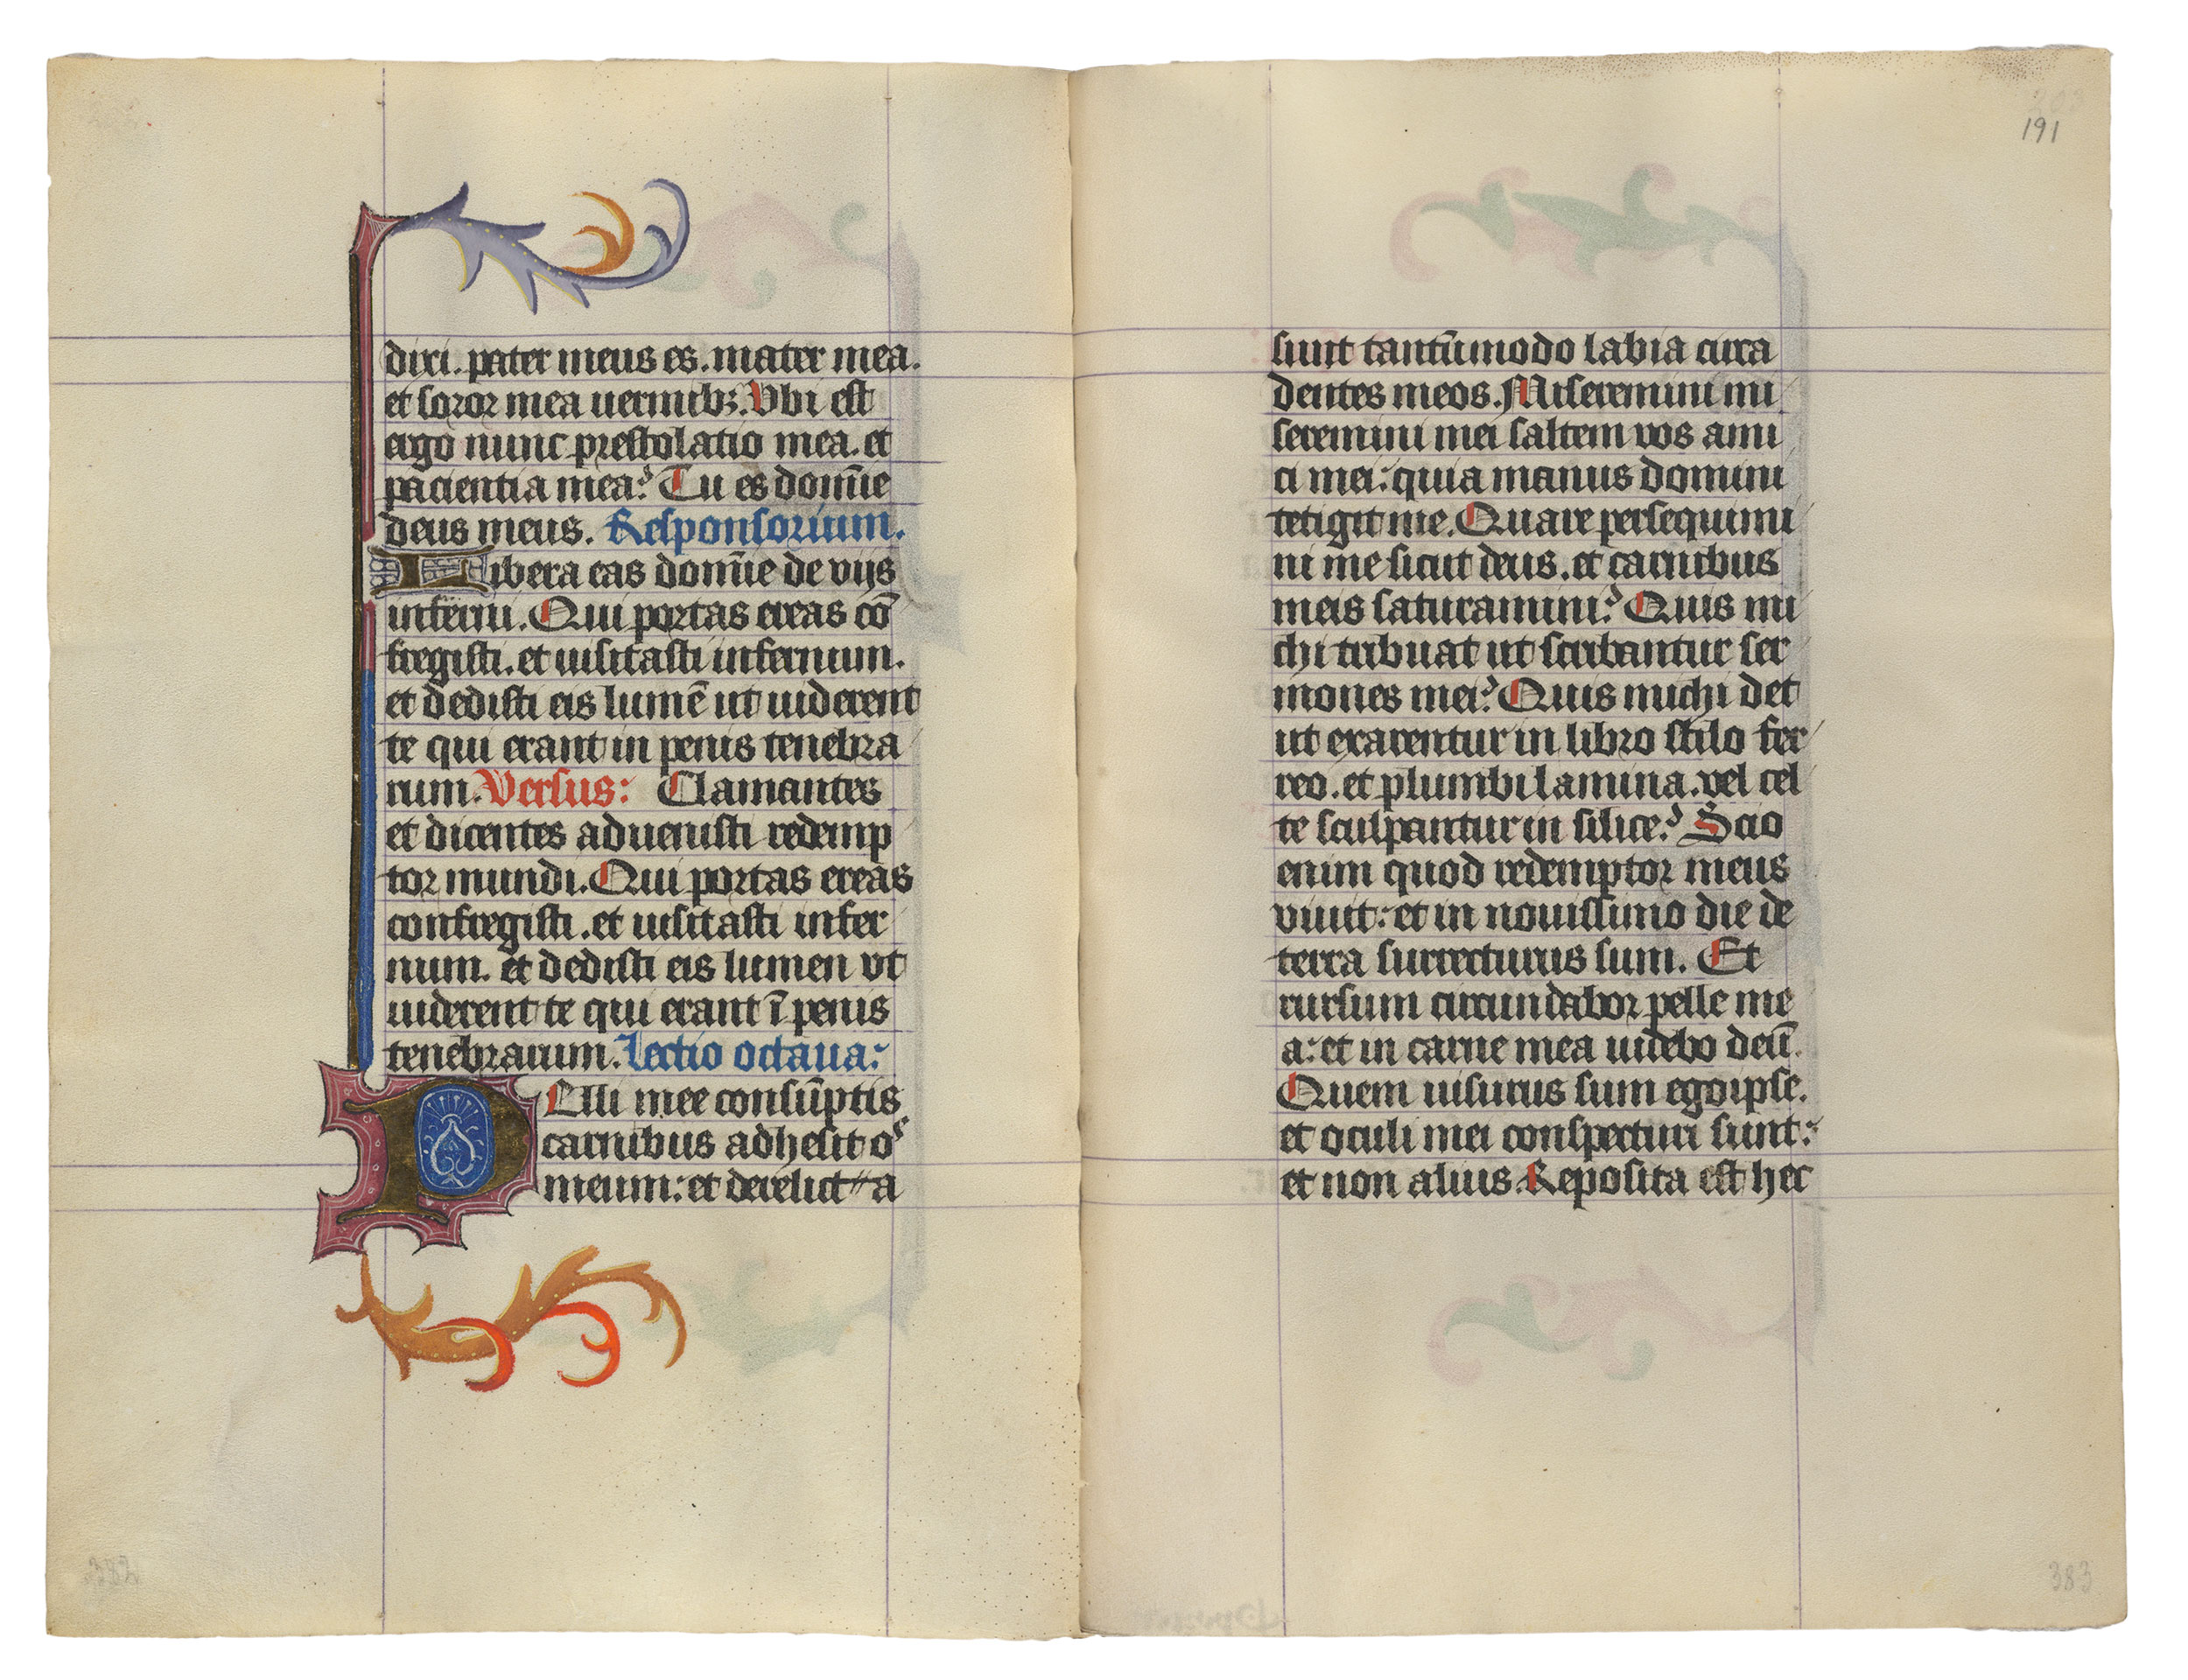 dixi. pater meus es. mater mea.
et soror mea uermibꝫ. Vbi est
ergo nunc prestolatio mea. et
pacientia mea? Tu es dom̄e
deus meus. Responsorium.
Libera eas dom̄e de vijs
inferni. Qui portas ereas cō
fregisti. et uisitasti infernum.
et dedisti eis lumē ut uiderent
te qui erant in penis tenebra
rum. Versus: Clamantes
et dicentes aduenisti redemp
tor mundi. Qui portas ereas
confregisti. et uisitasti infer
num. et dedisti eis lumen vt
uiderent te qui erant ī penis
tenebrarum. Lectio octaua:
PElli mee consūptis
carnibus adhesit os
meum: et derelicta
382
203
191
sunt tantūmodo labia circa
dentes meos. Miseremini mi
seremini mei saltem vos ami
ci mei: quia manus domini
tetigit me. Quare persequimi
ni me sicut deus. et carnibus
meis saturamini? Quis mi
chi tribuat ut scribantur ser
mones mei? Quis michi det
ut exarentur in libro stilo fer
reo. et plumbi lamina. vel cel
te sculpantur in silice? Scio
enim quod redemptor meus
viuit: et in nouissimo die de
terra surrecturus sum. Et
rursum circundabor pelle me
a: et in carne mea uidebo deū.
Quem uisurus sum ego ipse.
et oculi mei conspecturi sunt:
et non alius. Reposita est hec
383